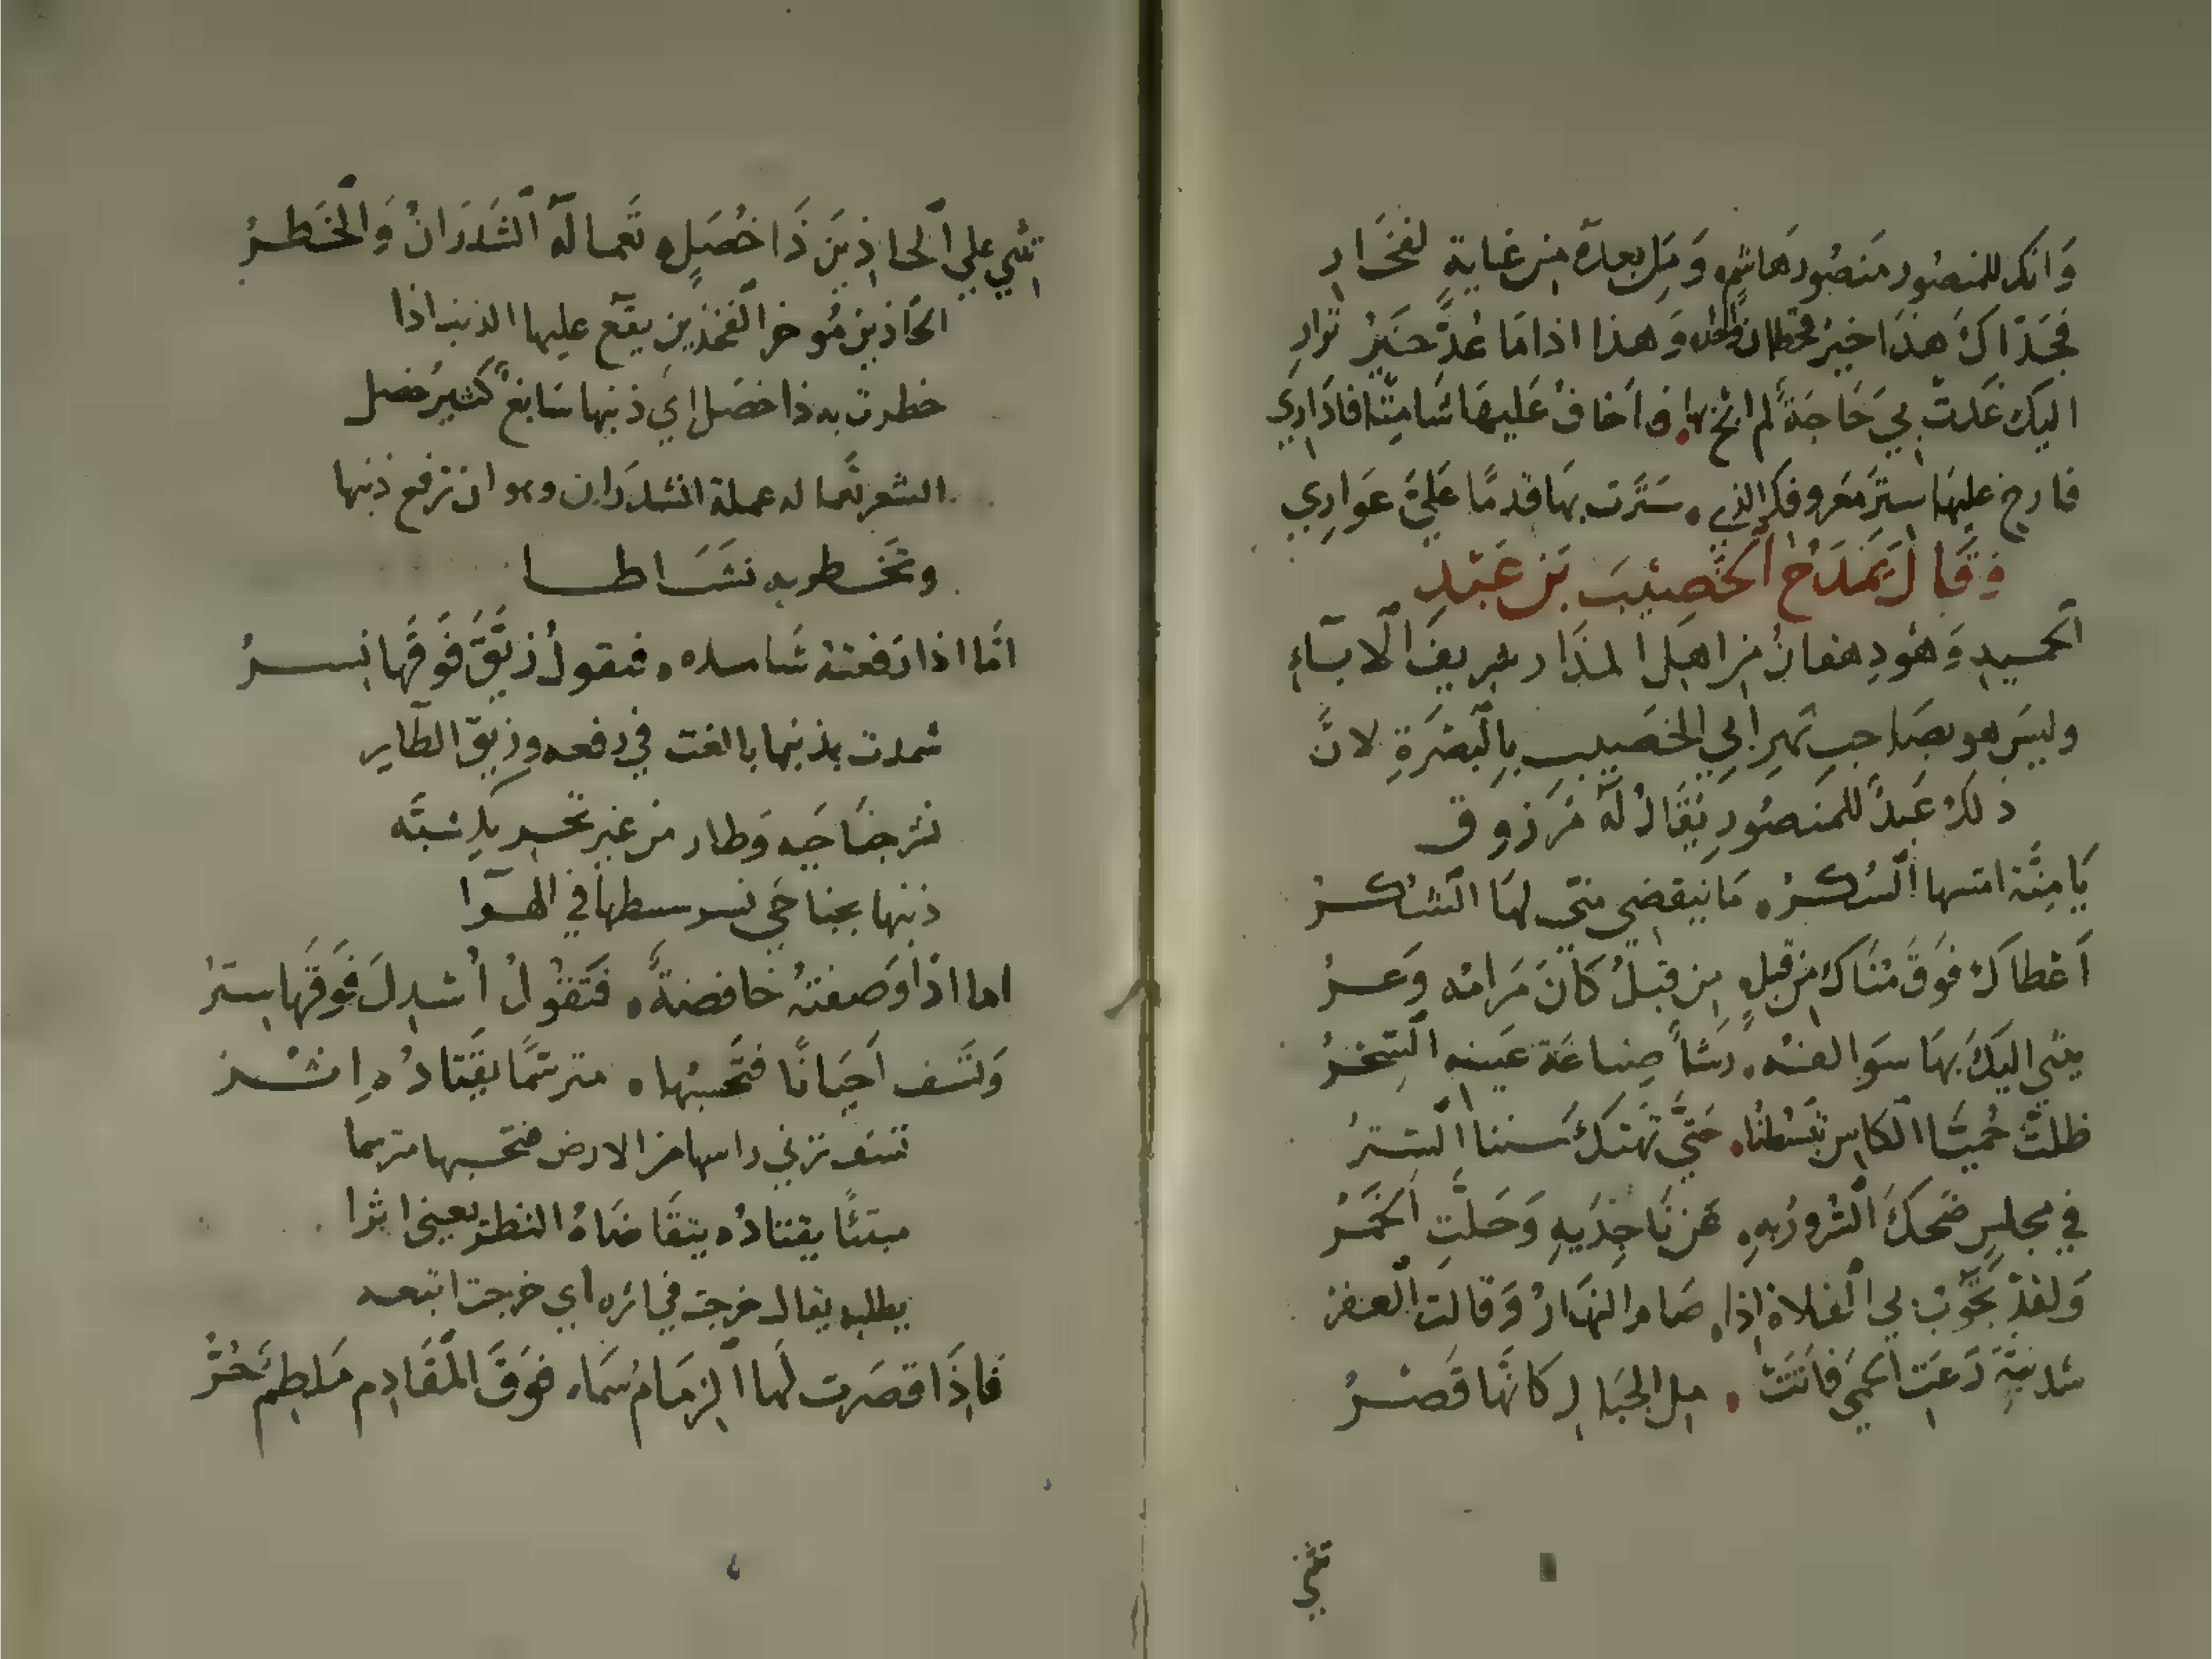 وَانكَ للمنصُور منصُور هَاشم وَمَا بعدَهُ من غايةٍ لفخَارِ
فجَدّاكَ هذَا خيرُ قحطان واحد وَهذا اذا مَا عُدَّ خيرُ نزارِ
اليكَ غدَتْ بي حَاجَةً لم ابُح بها اخافُ عَليهَا شَامِتًا فادَارِي
فارخِ عليهَا سِترَ مَعروفكَ الذي سَترت بهَا قدمًا عَليَّ عوَارِي
وَقَالَ يَمْدَحُ الْخَصِيبَ بْنَ عَبْدِ
الحميدِ وَهُو دهقانٌ من اهل المذَار شريفَ الآبَاءِ
وليسَ هو بصَاحبِ نَهرِ ابي الخَصيبِ بِالْبَصْرَةِ لانَّ
ذلكَ عَبدٌ للمَنصُورِ يُقَالُ لَهُ مَرزوق
يَا مِنَّة امتنها السُكرُ مَا ينقضي مني لهَا الشكرُ
اَعْطاكَ فوَقَ مُنَاكَ من قبلٍ من قبلُ كَانَ مَرَامُه وَعرُ
يثني اليكَ بهَا سَوالفه رَشأً صِنَاعَة عَينه السِحْرُ
ظلتْ حُميَّا الكاسِ تبْسُطنا حَتَّى تهتكَ بيننا السِترُ
في مجلسٍ ضَحكَ السُرورُ بهِ عن نَاجِذَيهِ وَحَلَّتِ الخَمْرُ
وَلقدْ تجُوبُ بي الفلاةَ اذا صَام النهَارُ وَقالت العفرُ
شدنيَّة رَعَت الحمى فَاتَتْ مل الجبَالِ كانَّها قَصْرُ
تثني
تثني علي الحاذين ذَا خُصَلٍ تَعمالُهُ الشَّدَرَانُ وَالْخَطرُ
الحَاذين مُوخر الفخذين يقَع عليها الذنب اذا
خطرت به ذا خصَل اي ذنبها سَابغ كثيرُ خصل
الشعر تعماله عمله الشدَرَان وهو ان ترفع ذنبها
وتخطر به نشَاطا
امَّا اذا رَفعتهُ شَامذه فتقولُ زنَّقَ فَوقَها نسرُ
شمذت بذنبها بالغت في رفعه ورنق الطَاير
نشر جناحَيه وَطار من غير تحريك شبَّه
ذنبها بجناحَي نسر بسطها في الهوا
اما اذَا وَضعتهُ خافضةً فَتقُولُ اُسْدِلَ فَوقَها سِترُ
وَتسف احيَانًا فتَحسبُها مترسمًا يقتَادُه اِثرُ
تسف تدني راسها من الارض فتحسبها مترسما
متبينًا يقتادُه يتقَاضَاهُ النظر يعني اثرا
يطلبه يقال خرجت في اثره اي خرجت اتبعه
فاِذَا قصَرت لَها الزمَامُ سَما فوَقَ المَقَادِم مَلطِمٌ حُرُّ